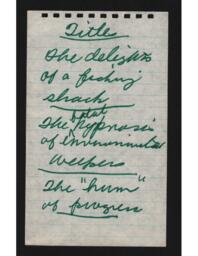 Title
The delights
of a fishing
shack
The fatal hypnosis
of environmental
weepers
The "hum"
of progress